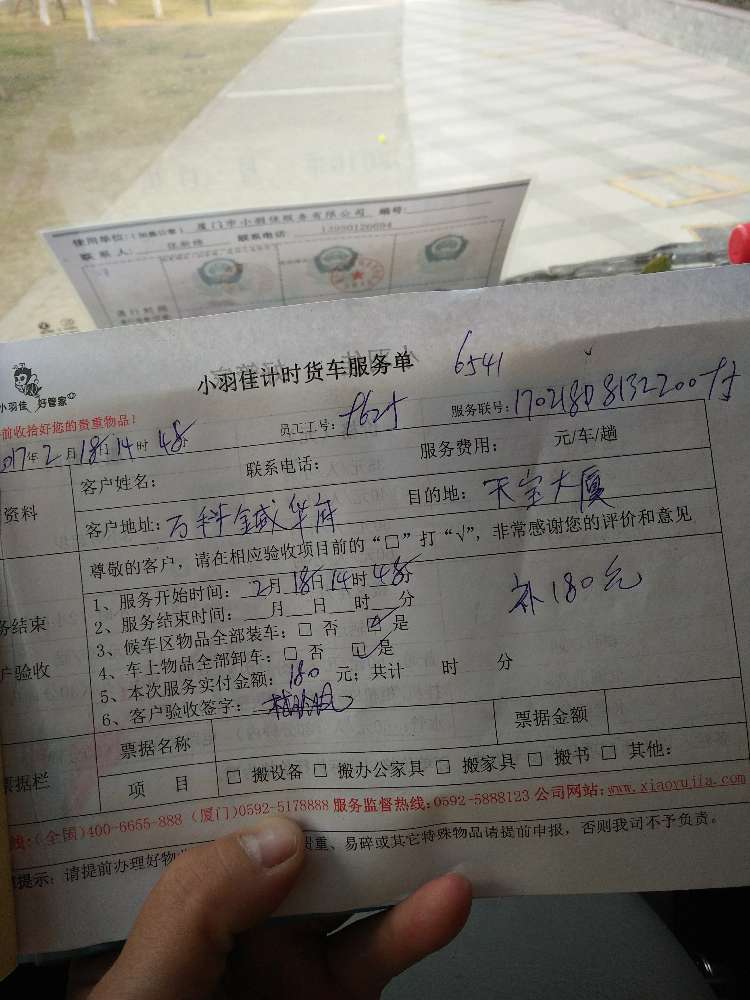 使用单位:(加盖公章) 厦门市小羽佳服务有限公司 编号:
联系人: 联系电话: 13950126694
小羽佳 好管家
小羽佳计时货车服务单 6541
前收拾好您的贵重物品!
2017年2月18日14时48分 员工工号: 服务联号:
资料 客户姓名: 联系电话: 服务费用: 元/车/趟
客户地址:万科金域华府 目的地: 天宝大厦
尊敬的客户，请在相应验收项目前的“□”打“√”，非常感谢您的评价和意见
务结束
户验收
1、服务开始时间: 2月18日14时48分
2、服务结束时间: 月 日 时 分 补180元
3、候车区物品全部装车: □ 否 ☑ 是
4、车上物品全部卸车: □ 否 ☑ 是
5、本次服务实付金额: 180 元; 共计 时 分
6、客户验收签字:
票据栏 票据名称 票据金额
项 目 □ 搬设备 □ 搬办公家具 □ 搬家具 □ 搬书 □ 其他:
线:(全国)400-6655-888 (厦门)0592-5178888 服务监督热线:0592-5888123 公司网站:www.xiaoyujia.com
提示: 请提前办理好物业 贵重、易碎或其它特殊物品请提前申报，否则我司不予负责。